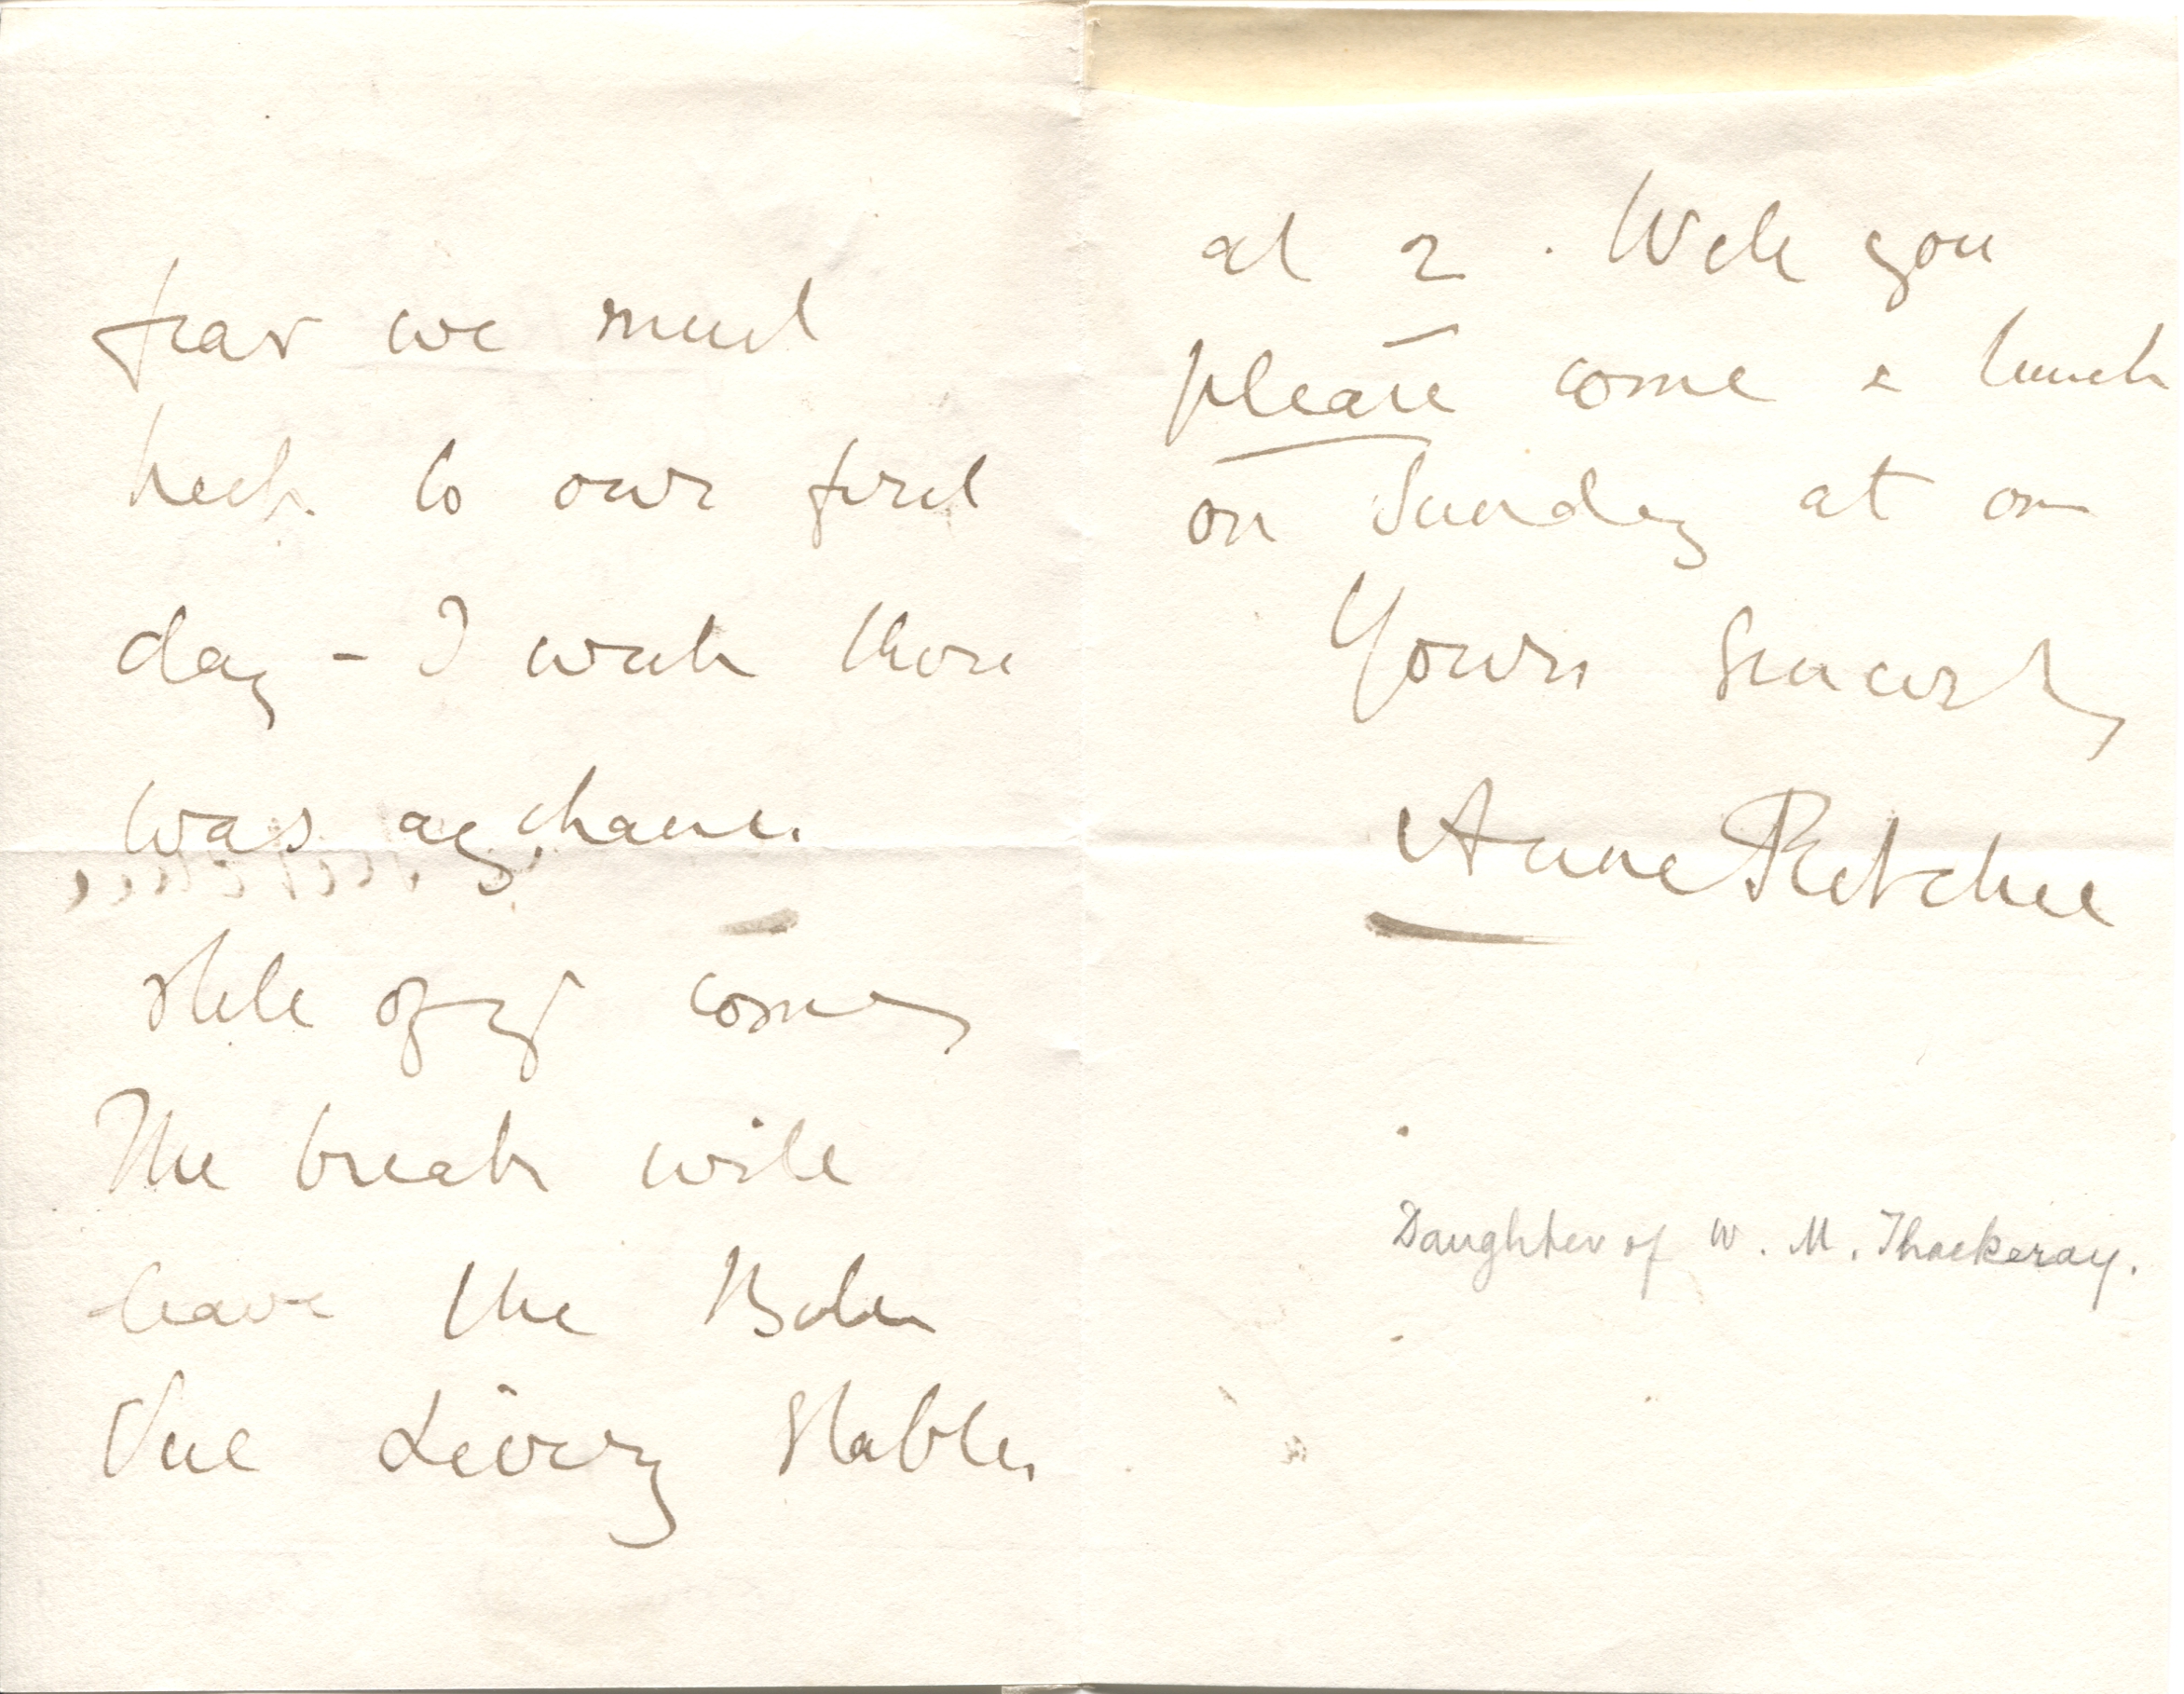 fear we must
keep to our first
day - I wish there
was any chance
still of yr coming
The break will
leave the
Livery Stables
at 2. Will you
please come & lunch
on Sunday at one
Yours sincerely
Anne Ritchie
Daughter of W. M. Thackeray.